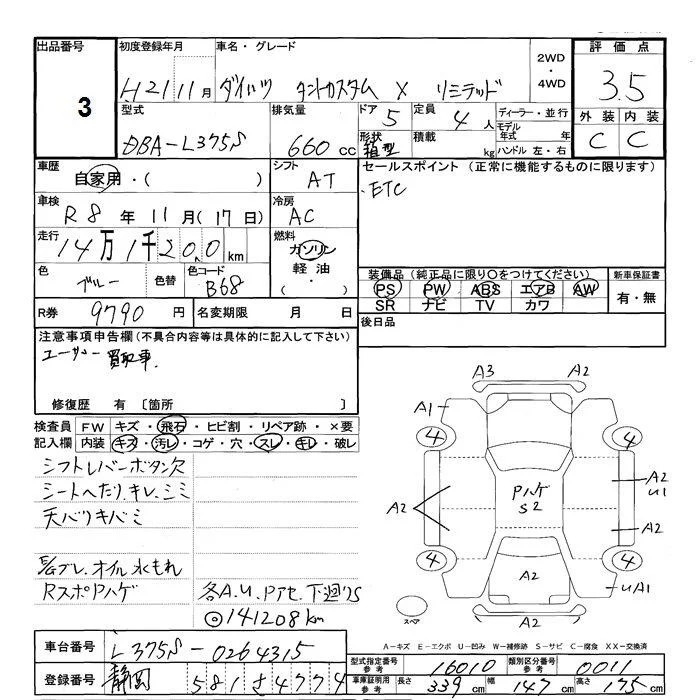 出品番号 初度登録年月 車名・グレード 2WD・4WD 評価点
3 H21 11月 ダイハツ タントカスタム X リミテッド 3.5
型式 排気量 ドア 5 定員 4人 ディーラー・並行 外装 内装
DBA-L375S 660cc 形状 箱型 積載 kg モデル年式 年 ハンドル 左・右 C C
車歴 自家用・( ) シフト AT セールスポイント (正常に機能するものに限ります)
車検 R8年 11月(17日) 冷房 AC ETC
走行 14万1千200km 燃料 ガソリン 軽油・( )
色 ブルー 色替 色コード B68 装備品 (純正品に限り○をつけてください) 新車保証書
PS PW ABS エアB AW 有・無
SR ナビ TV カワ
R券 9790円 名変期限 月 日 後日品
注意事項申告欄(不具合内容等は具体的に記入して下さい)
ユーザー買取車
修復歴 有 〔箇所 〕
検査員記入欄 FW キズ・飛石・ヒビ割・リペア跡・×要
内装 キズ・汚レ・コゲ・穴・スレ・キレ・破レ
シフトレバーボタン欠
シートへたり、キレ、シミ
天バリキバミ
オイル水もれ
RスポPハゲ 各A.U.
◎141208km
A3 A2
A1
4 4
Pハゲ
S2
A2 A2
U1
A2
4 4
A2 UA1
スペア A2
A-キズ E-エクボ U-凹み W-補修跡 S-サビ C-腐食 XX-交換済
車台番号 L375S-0264315
型式指定番号 参考 16010 類別区分番号 参考 0011
登録番号 静岡 581 さ 4774
車庫証明用 参考 長さ 339cm 幅 147cm 高さ 175cm